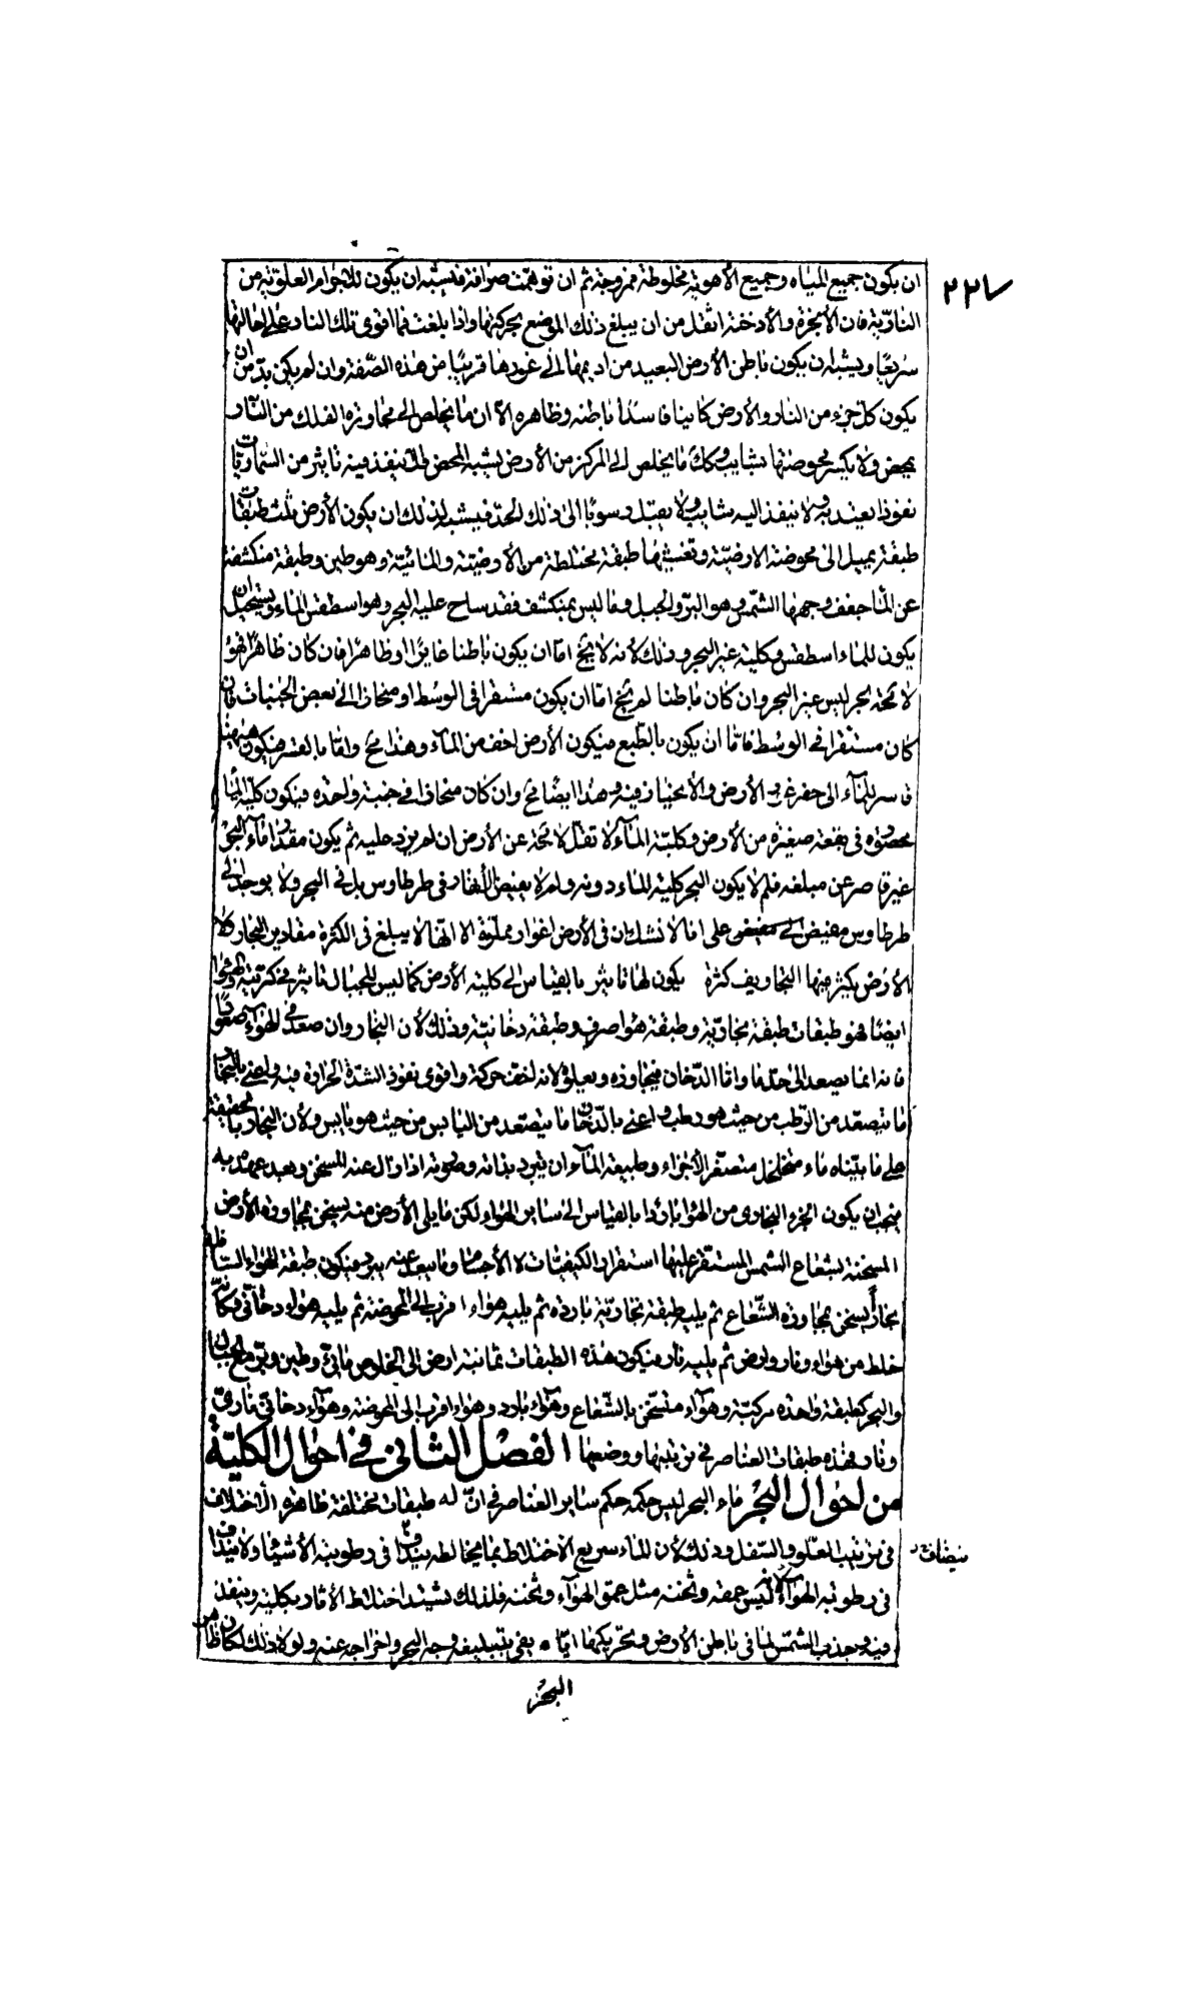 ان يكون جميع المياه وجميع الأهوية مخلوطة ممزوجة ثم ان توهمت صرافة فيشبه ان يكون للاجرام العلوية من
٢٢٧
النارية فان الأبخرة والأدخنة اثقل من ان يبلغ ذلك الموضع بحركتها واذا بلغت فما اقوى تلك النار على احالتها
سريعا ويشبه ان يكون باطن الأرض البعيد من اديمها الى غورها قريبا من هذه الصفة وان لم يكن بد من ان
يكون كل جزء من النار والأرض كاينا فاسدا باطنه وظاهره الا ان ما يخلص الى مجاورة الفلك من النار
يمحض ولا يكسر محوضتها بشايب وكك ما يخلص الى المركز من الأرض يشبه المحض فلا ينفذ فيه تاثير من السماويات
نفوذا يعتد به ولا ينفذ اليه شايب ولا يقبل رسوبا الى ذلك الحد فيشبه لذلك ان يكون الأرض ثلث طبقات
طبقة يميل الى محوضة الارضية وتغشيها طبقة مختلطة من الأرضية والمائية وهو طين وطبقة منكشفة
عن الماء جفف وجهها الشمس وهو البر والجبل وما ليس بمنكشف فقد ساح عليه البحر وهو اسطقس الماء ويستحيل ان
يكون للماء اسطقس وكلية غير البحر وذلك لأنه لا يخ اما ان يكون باطنا غايرا او ظاهرا فان كان ظاهرا فهو
لا محة بحر ليس غير البحر وان كان باطنا لم يخ اما ان يكون مستقرا فى الوسط او منحازا الى بعض الجنبات فان
كان مستقرا فى الوسط فاما ان يكون بالطبع فيكون الأرض اخف من الماء وهذا مح واما بالقسر فيكون هيهنا
قاسر للماء الى حفر غور الأرض والأنحياز فيه وهذا ايضا مح وان كان منحازا فى جنبة واحدة فيكون كلية الماء
محصورة فى بقعة صغيرة من الأرض وكلية الماء لا تقل لا محة عن الأرض ان لم يزد عليه ثم يكون مقدار ماء البحر
غير قاصر عن مبلغه فلم لا يكون البحر كلية للماء دونه ولم لا يفيض الأنهار فى طرطاوس بل فى البحر ولا يوجد الى
طرطاوس مفيض على انا لا نشك ان فى الأرض اغوار مملوة الا انها لا يبلغ فى الكثرة مقادير البحار كلا
الأرض يكثر فيها التجاويف كثرة يكون لها تاثير بالقياس الى كلية الأرض كما ليس للجبال تاثير فى كريته والهواء
ايضا فهو طبقات طبقة بخارية وطبقة هواء صرف وطبقة دخانية وذلك لأن البخار وان صعد فى الهواء صعودا
فانه انما يصعد الى حد ما واما الدخان فيجاوزه ويعلو لانه اخف حركة واقوى نفوذا لشدة الحرارة فيه واعنى بالبخار
ما يتصعد من الرطب من حيث هو رطب واعنى بالدخان ما يتصعد من اليابس من حيث هو يابس ولأن البخار بالحقيقة
على ما بيناه ماء متخلخل متصغر الأجزاء وطبيعة الماء ان يبرد بذاته وصورته اذا زال عنه المسخن وبعد عهده به
فيجب ان يكون الجزء البخارى من الهواء باردا بالقياس الى ساير الهواء لكن ما يلى الأرض منه يسخن بمجاورة الأرض
المسخنة بشعاع الشمس المستقر عليها استقرار الكيفيات لا الأجسام وما يبعد عنه يبرد فيكون طبقة الهواء السافلة
بخارا يسخن بمجاورة الشعاع ثم يليه طبقة بخارية باردة ثم يليه هواء اقرب الى المحوضة ثم يليه هواء دخانى وكانه
خلط من هواء ونار وارض ثم يليه نار فيكون هذه الطبقات ثمانية ارض الى الخلوص ما هى وطين وبر مع الجبال
والبحر كطبقة واحدة مركبة وهواء متسخن بالشعاع وهواء بارد وهواء اقرب الى المحوضة وهواء دخانى نارى
ونار فهذه طبقات العناصر فى ترتيبها ووضعها الفصل الثانى فى احوال الكلية
من احوال البحر ماء البحر ليس حكمه حكم ساير العناصر فى ان له طبقات مختلفة ظاهرة الأختلاف
فى ترتيب العلو والسفل وذلك لأن الماء سريع الأختلاط بما يخالطه فى رطوبة الأشياء ولا
فى رطوبة الهواء لانه ليس عمقه وثخنه مثل عمق الهواء وثخنه فلذلك يشتد اختلاط الأقاد بكلية وينفذ
فيه وجذب الشمس لما فى باطن الأرض وتحريكها اياه يفى بتبليغه وجه البحر واخراجه عنه ولولا ذلك لكان ظاهر
البحر